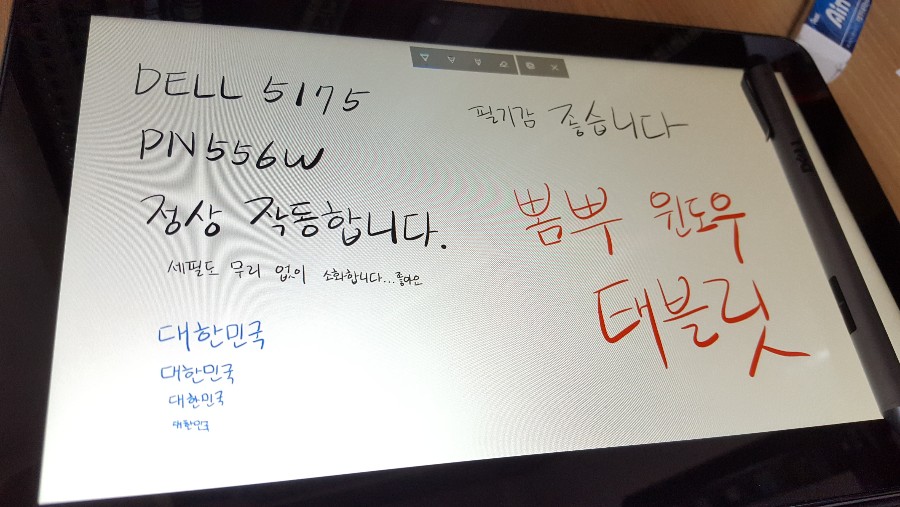 DELL 5175
PN556W
정상 작동합니다.
세필도 무리 없이 소화합니다...좋아요
대한민국
대한민국
대한민국
대한민국
필기감 좋습니다
뽐뿌 윈도우
태블릿
DELL
Ain